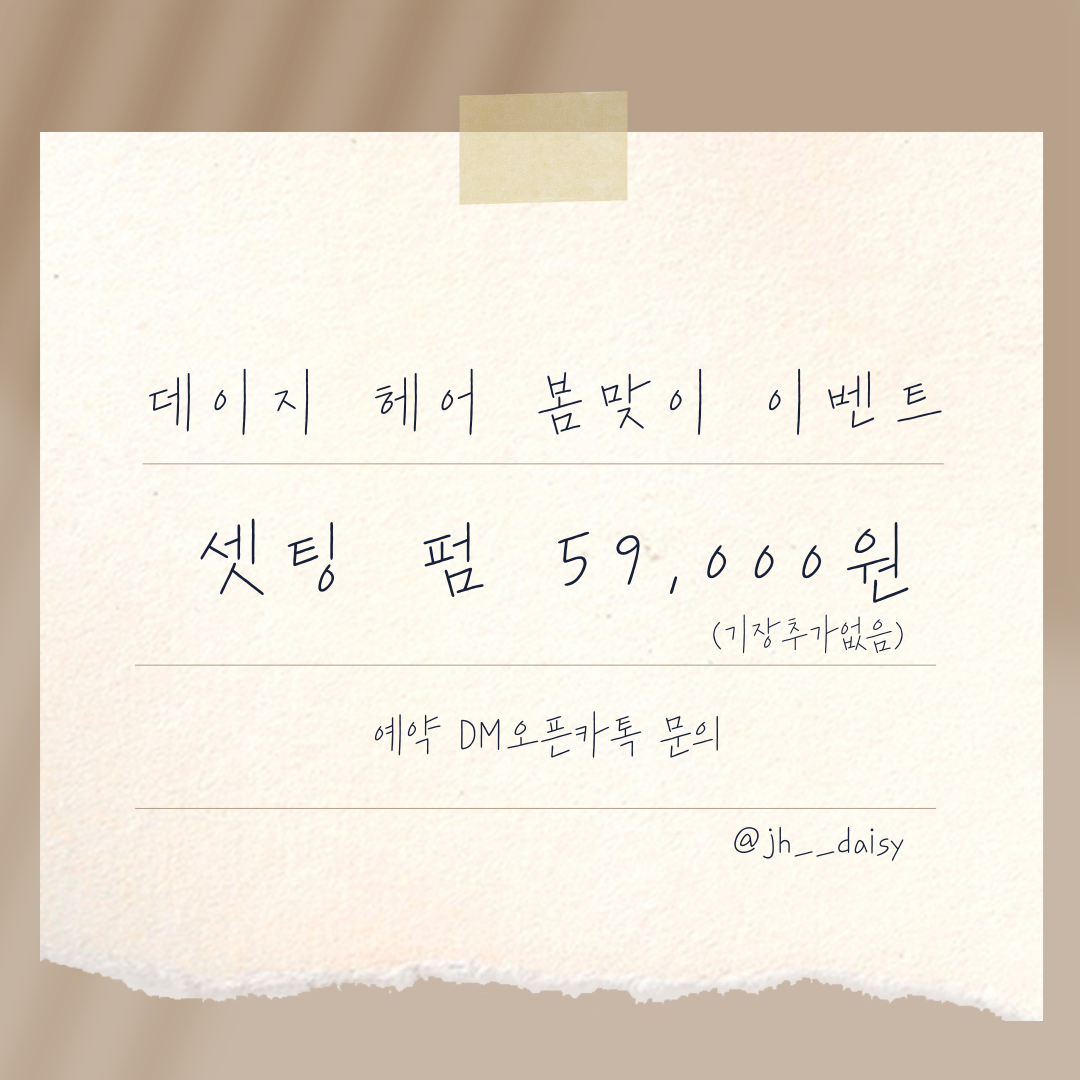 데이지 헤어 봄맞이 이벤트
셋팅 펌 59,000원
(기장추가없음)
예약 DM오픈카톡 문의
@jh__daisy